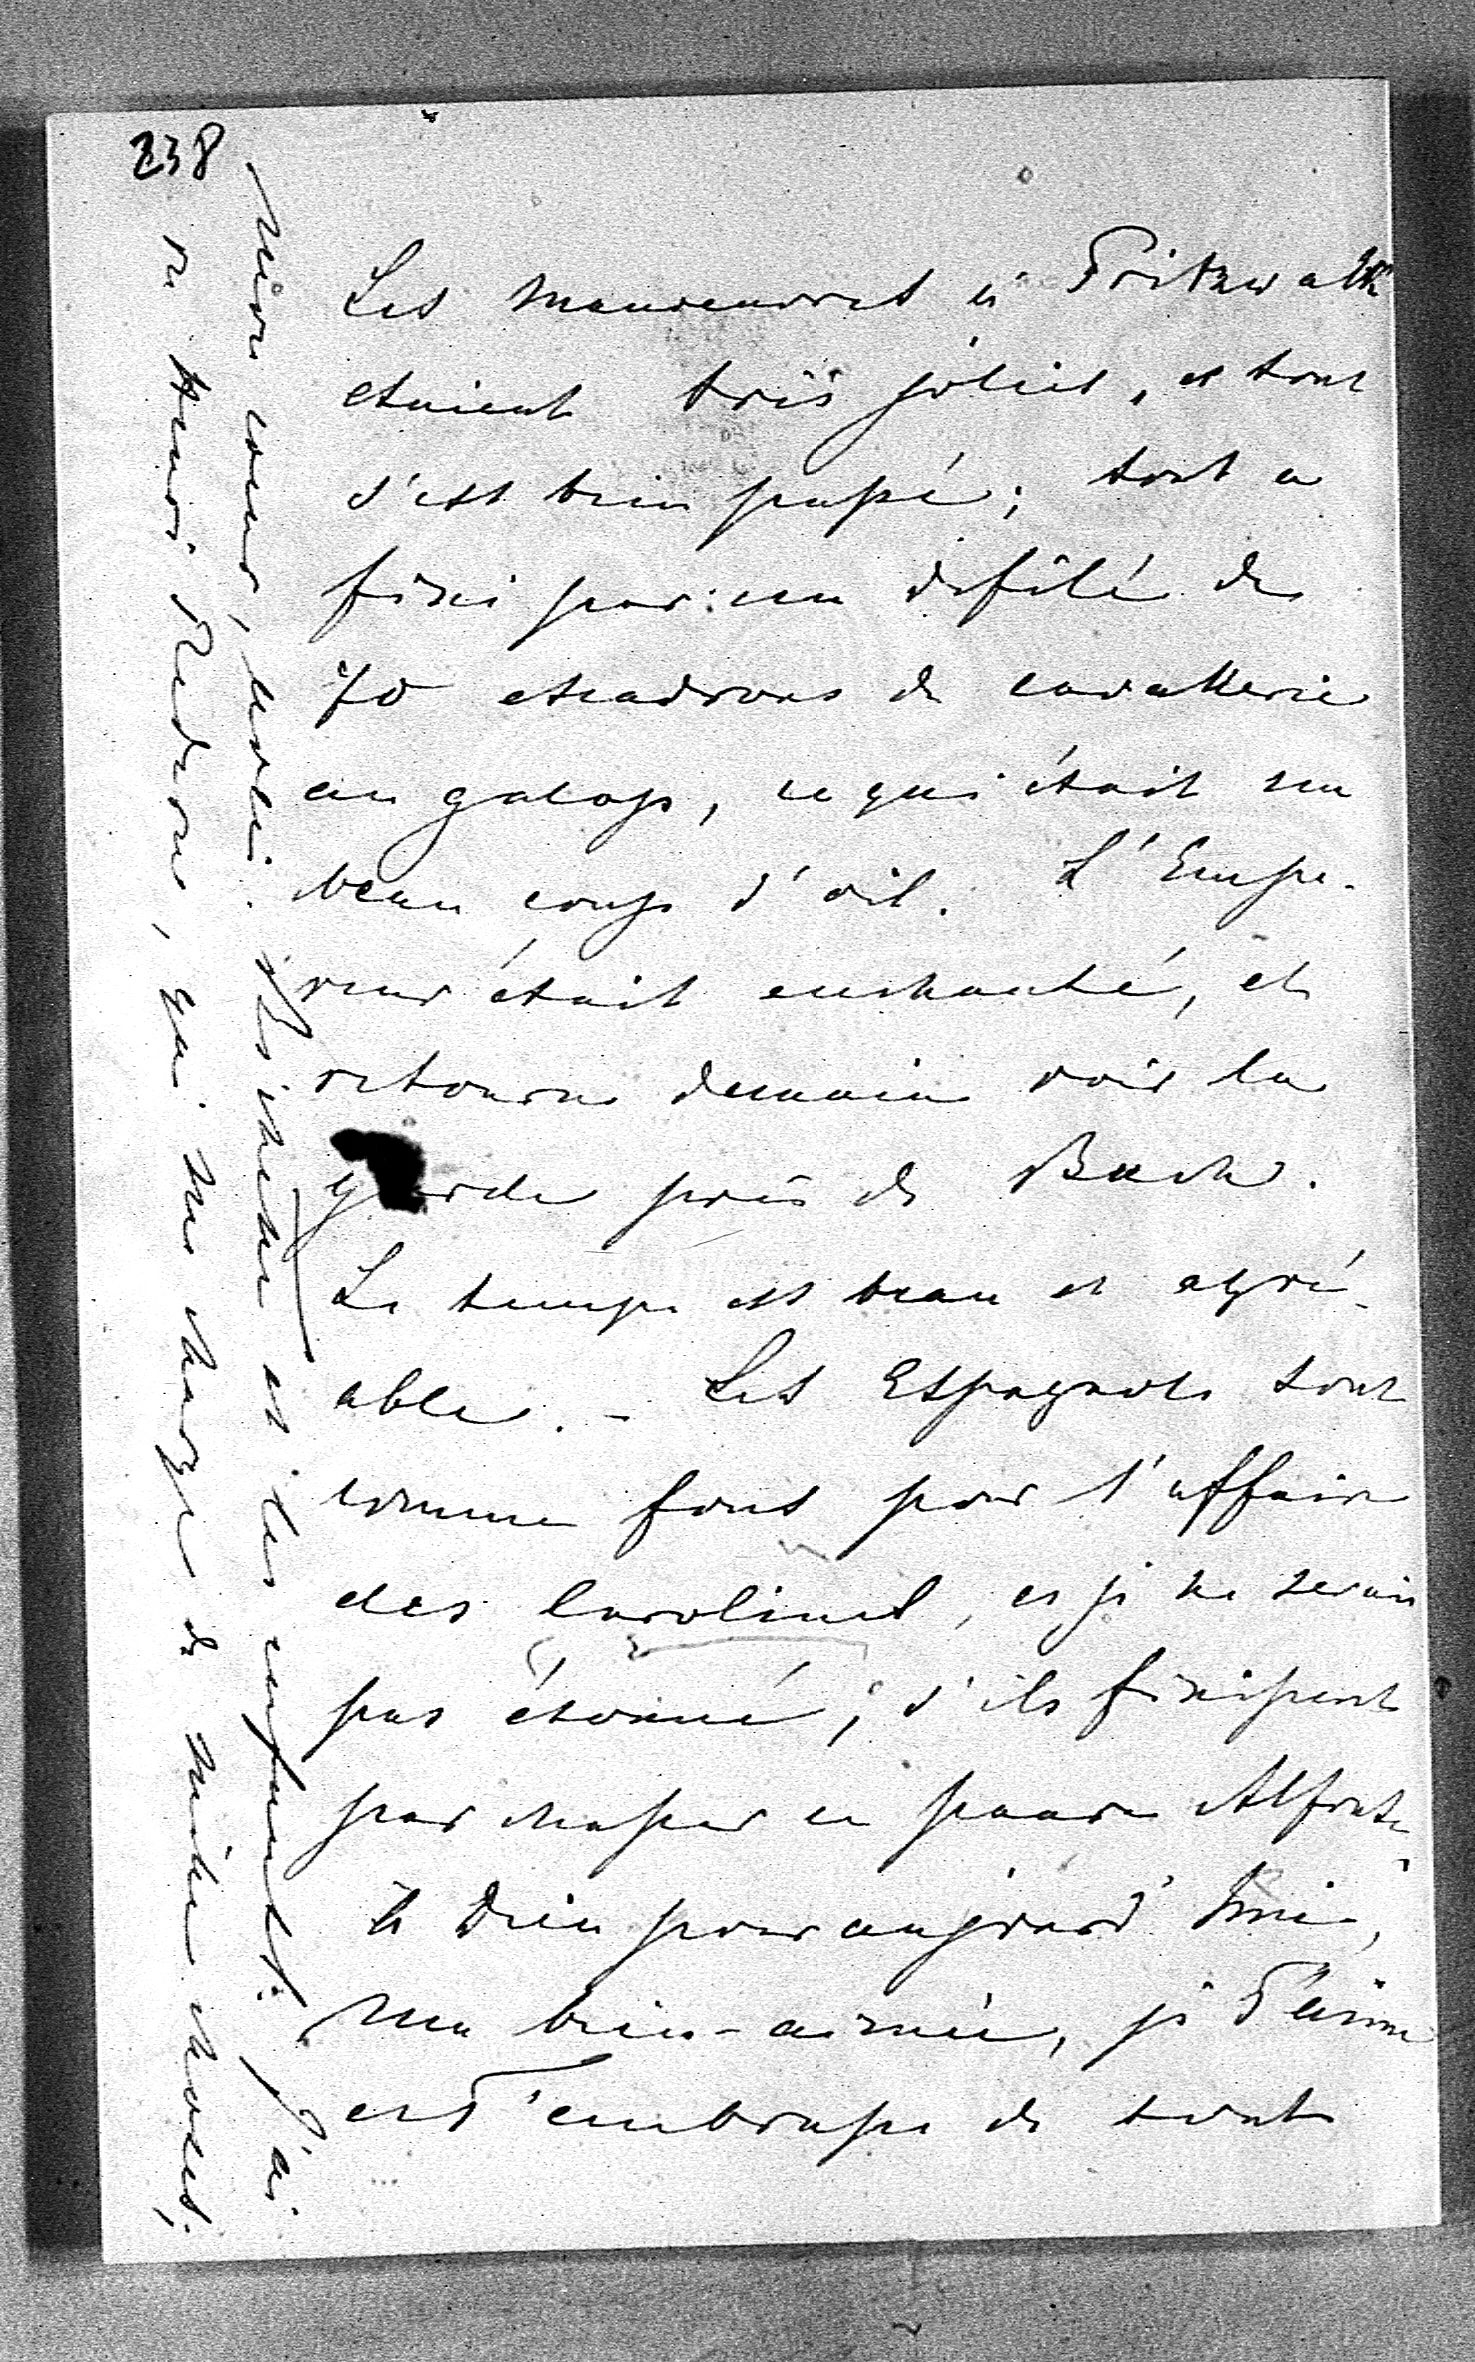 238
Les manoeuvres à Pritzwalk
etaient très jolies, et tout
s'est bien passé; tout a
fini par un defilé de
70 escadrons de cavallerie
au galop, ce qui était un
beau coup d'oeil. L'Empe-
reur était enchanté, et
retourne demain voir la
garde près de Buch.
Le temps est beau et agré-
able. - Les Espagnols sont
comme fous pour l'affaire
des Carolines, et je ne serais
pas étonné, s'ils finissent
par chasser ce pauvre Alfonse.
à Dieu pour aujourd'hui,
ma bien-aimée, je T'aime
et T'embrasse de tout
mon coeur, ainsi que et les enfants. J'ai
vu Henri Redern, qui me charge de mille choses.